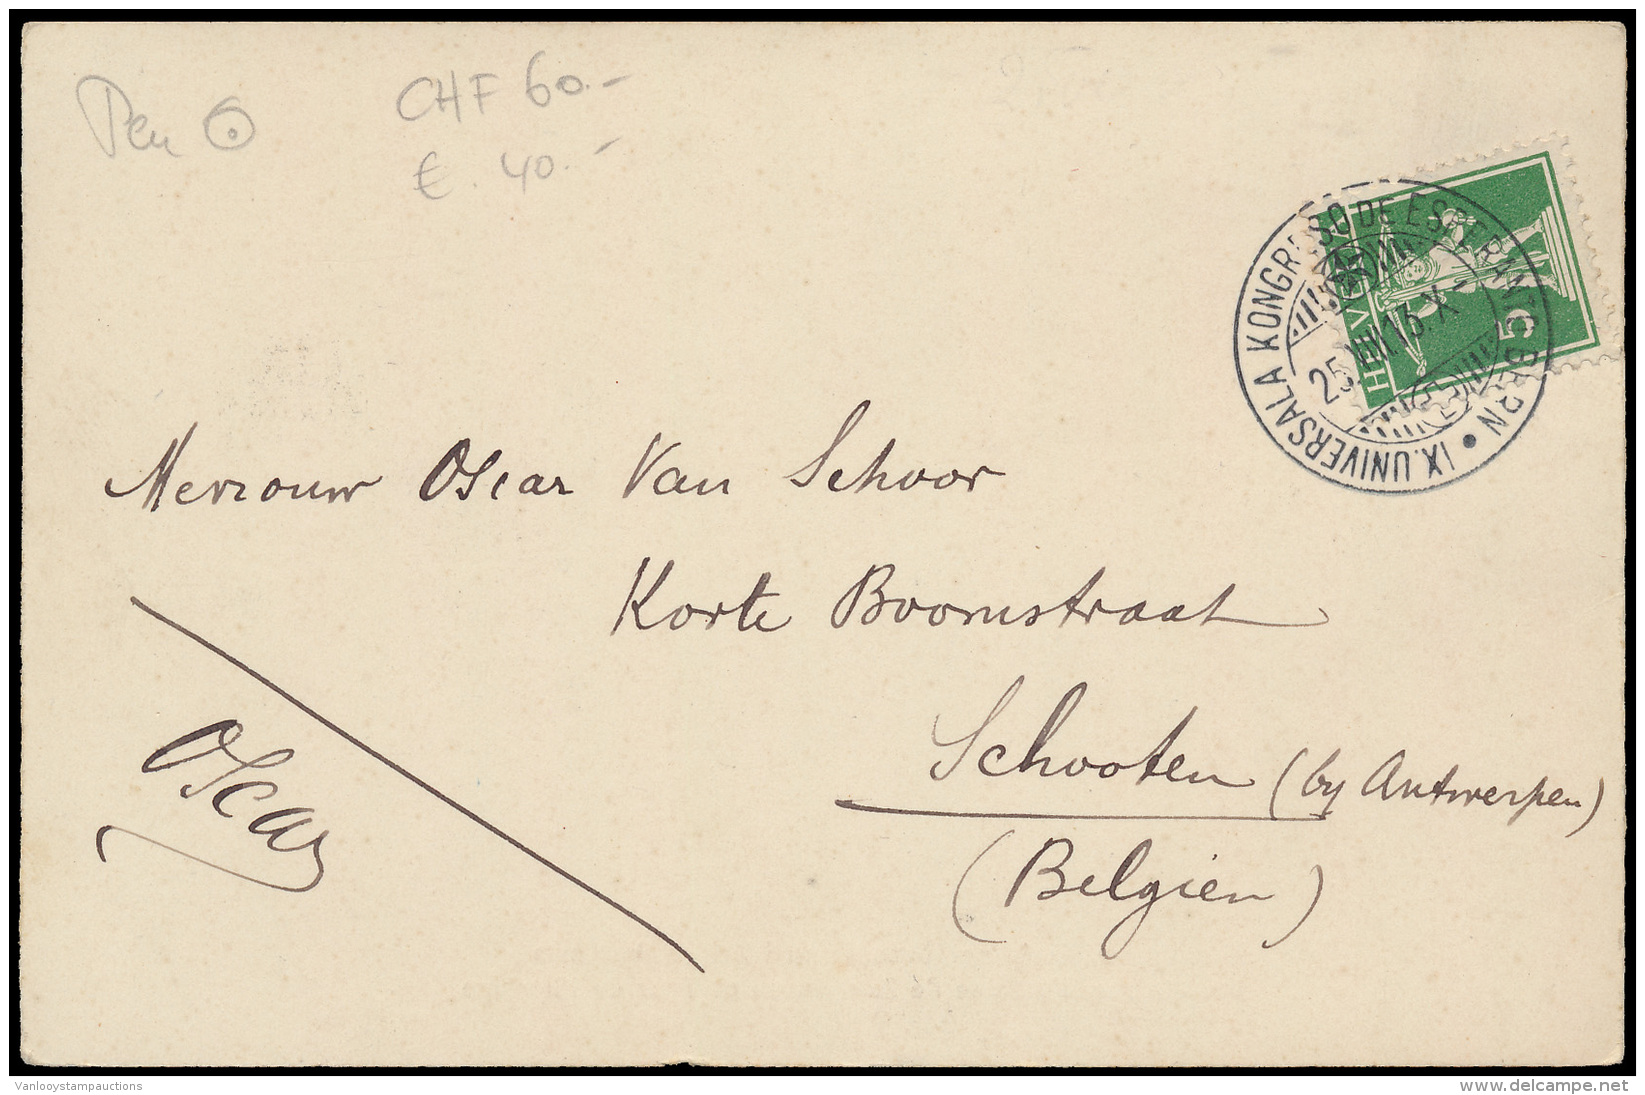 CHF 60.-
€. 40.-
HELVETIA
5
IX. UNIVERSALA KONGRESSO DE ESPERANTO BERN
25.VIII.13.X
Mevrouw Oscar Van Schoor
Korte Boomstraat
Schooten (by Antwerpen)
(Belgien)
Oscar
Vanlooystampauctions
delcampe.net